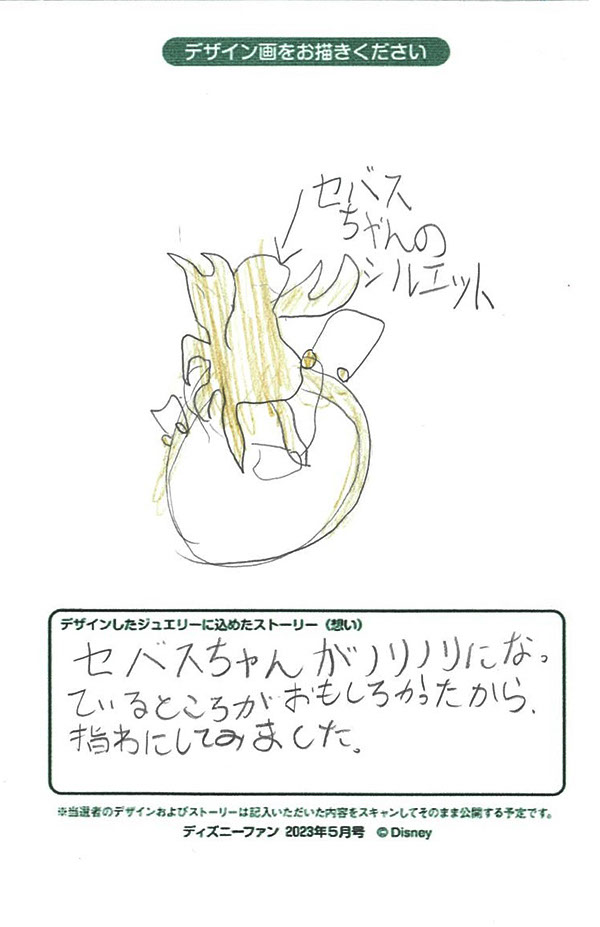 デザイン画をお描きください
セバス
ちゃんの
シルエット
デザインしたジュエリーに込めたストーリー（想い）
セバスちゃんがノリノリになっ
ているところがおもしろかったから、
指わにしてみました。
※当選者のデザインおよびストーリーは記入いただいた内容をスキャンしてそのまま公開する予定です。
ディズニーファン 2023年5月号 ©Disney